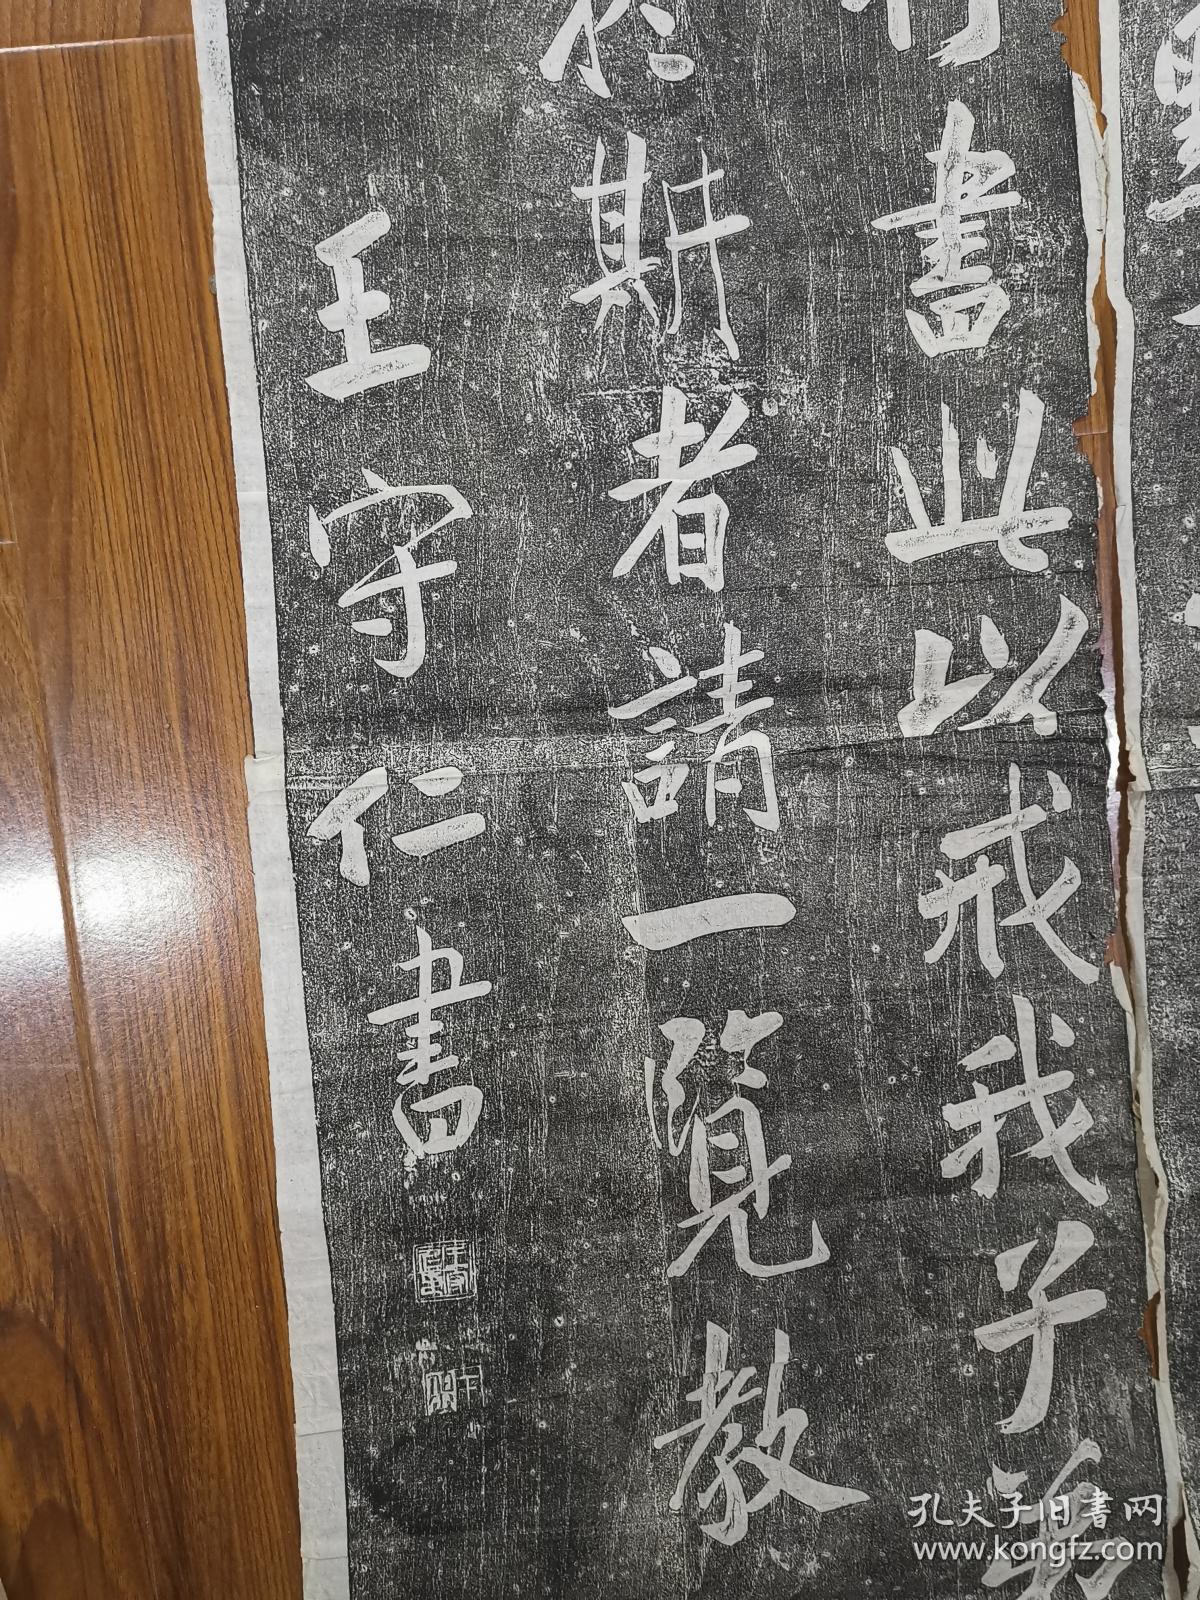 書此以戒我子
於斯者請一覽教
王守仁書
孔夫子旧書网
www.kongfz.com